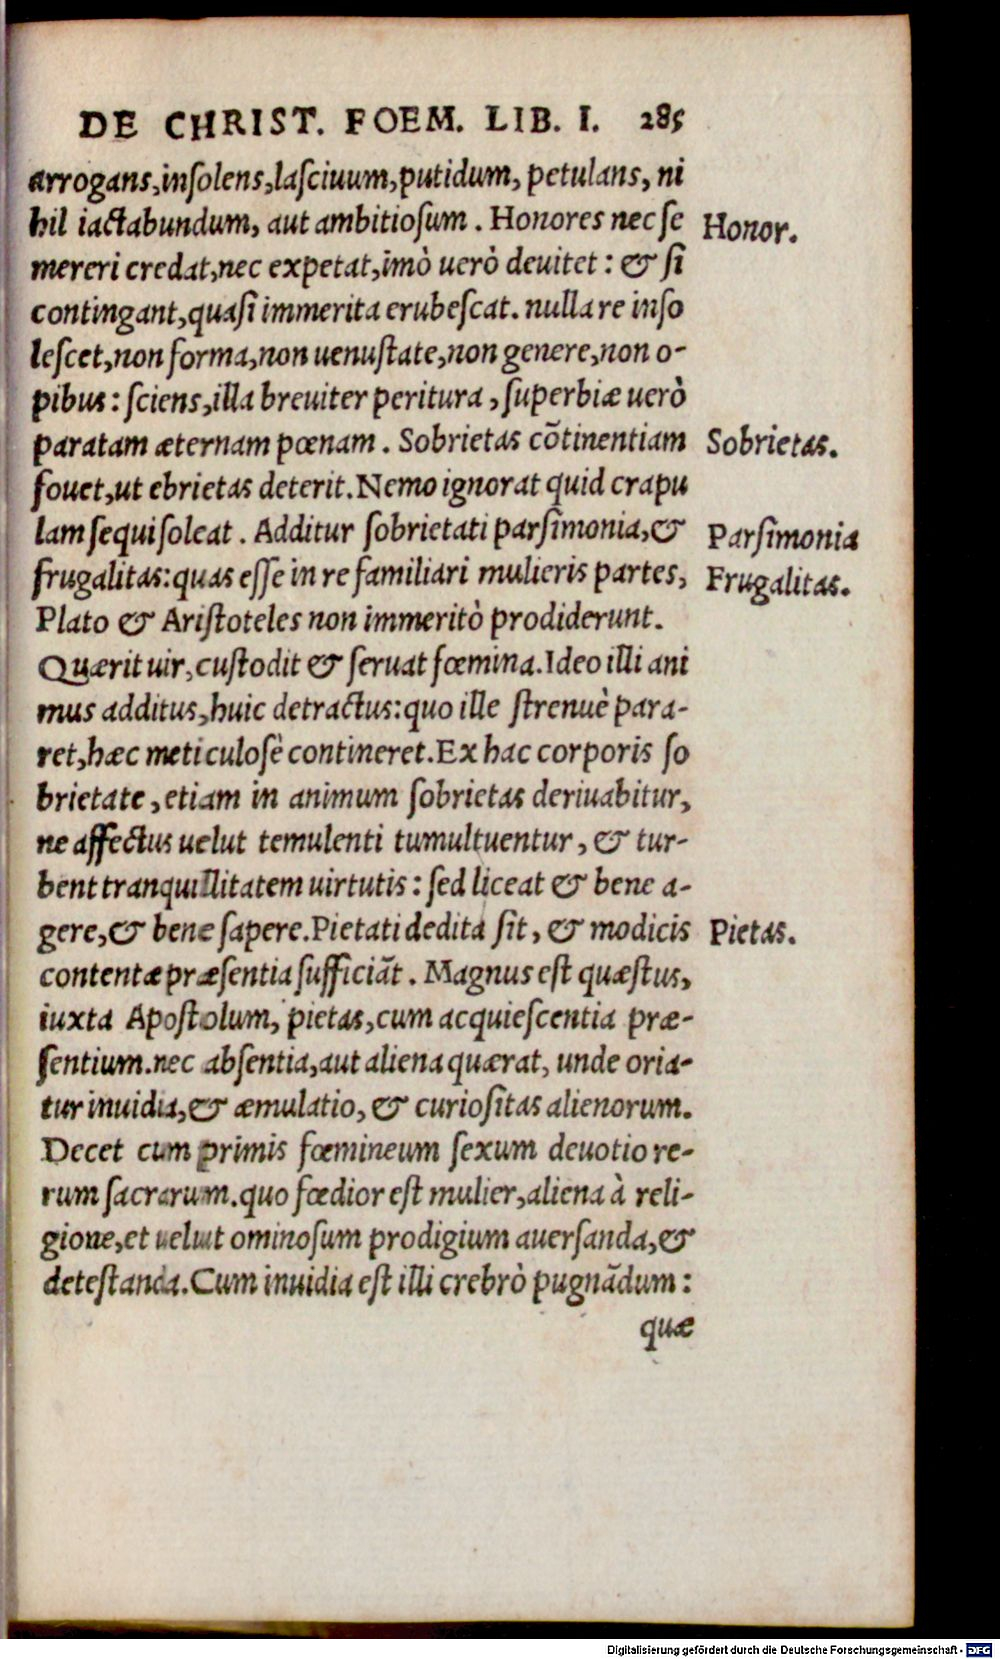 DE CHRIST. FOEM. LIB. I. 285
arrogans, insolens, lasciuum, putidum, petulans, ni
hil iactabundum, aut ambitiosum. Honores nec se
Honor.
mereri credat, nec expetat, imò uerò deuitet: & si
contingant, quasi immerita erubescat. nulla re inso
lescet, non forma, non uenustate, non genere, non o-
pibus: sciens, illa breuiter peritura, superbiæ uerò
paratam æternam pœnam. Sobrietas cõtinentiam
Sobrietas.
fouet, ut ebrietas deterit. Nemo ignorat quid crapu
lam sequi soleat. Additur sobrietati parsimonia, &
Parsimonia
frugalitas: quas esse in re familiari mulieris partes,
Frugalitas.
Plato & Aristoteles non immeritò prodiderunt.
Quærit uir, custodit & seruat fœmina. Ideo illi ani
mus additus, huic detractus: quo ille strenuè para-
ret, hæc meticulosè contineret. Ex hac corporis so
brietate, etiam in animum sobrietas deriuabitur,
ne affectus uelut temulenti tumultuentur, & tur-
bent tranquillitatem uirtutis: sed liceat & bene a-
gere, & bene sapere. Pietati dedita sit, & modicis
Pietas.
contentæ præsentia sufficiãt. Magnus est quæstus,
iuxta Apostolum, pietas, cum acquiescentia præ-
sentium. nec absentia, aut aliena quærat, unde oria-
tur inuidia, & æmulatio, & curiositas alienorum.
Decet cum primis fœmineum sexum deuotio re-
rum sacrarum. quo fœdior est mulier, aliena à reli-
gione, et uelut ominosum prodigium auersanda, &
detestanda. Cum inuidia est illi crebrò pugnãdum:
quæ
Digitalisierung gefördert durch die Deutsche Forschungsgemeinschaft - DFG